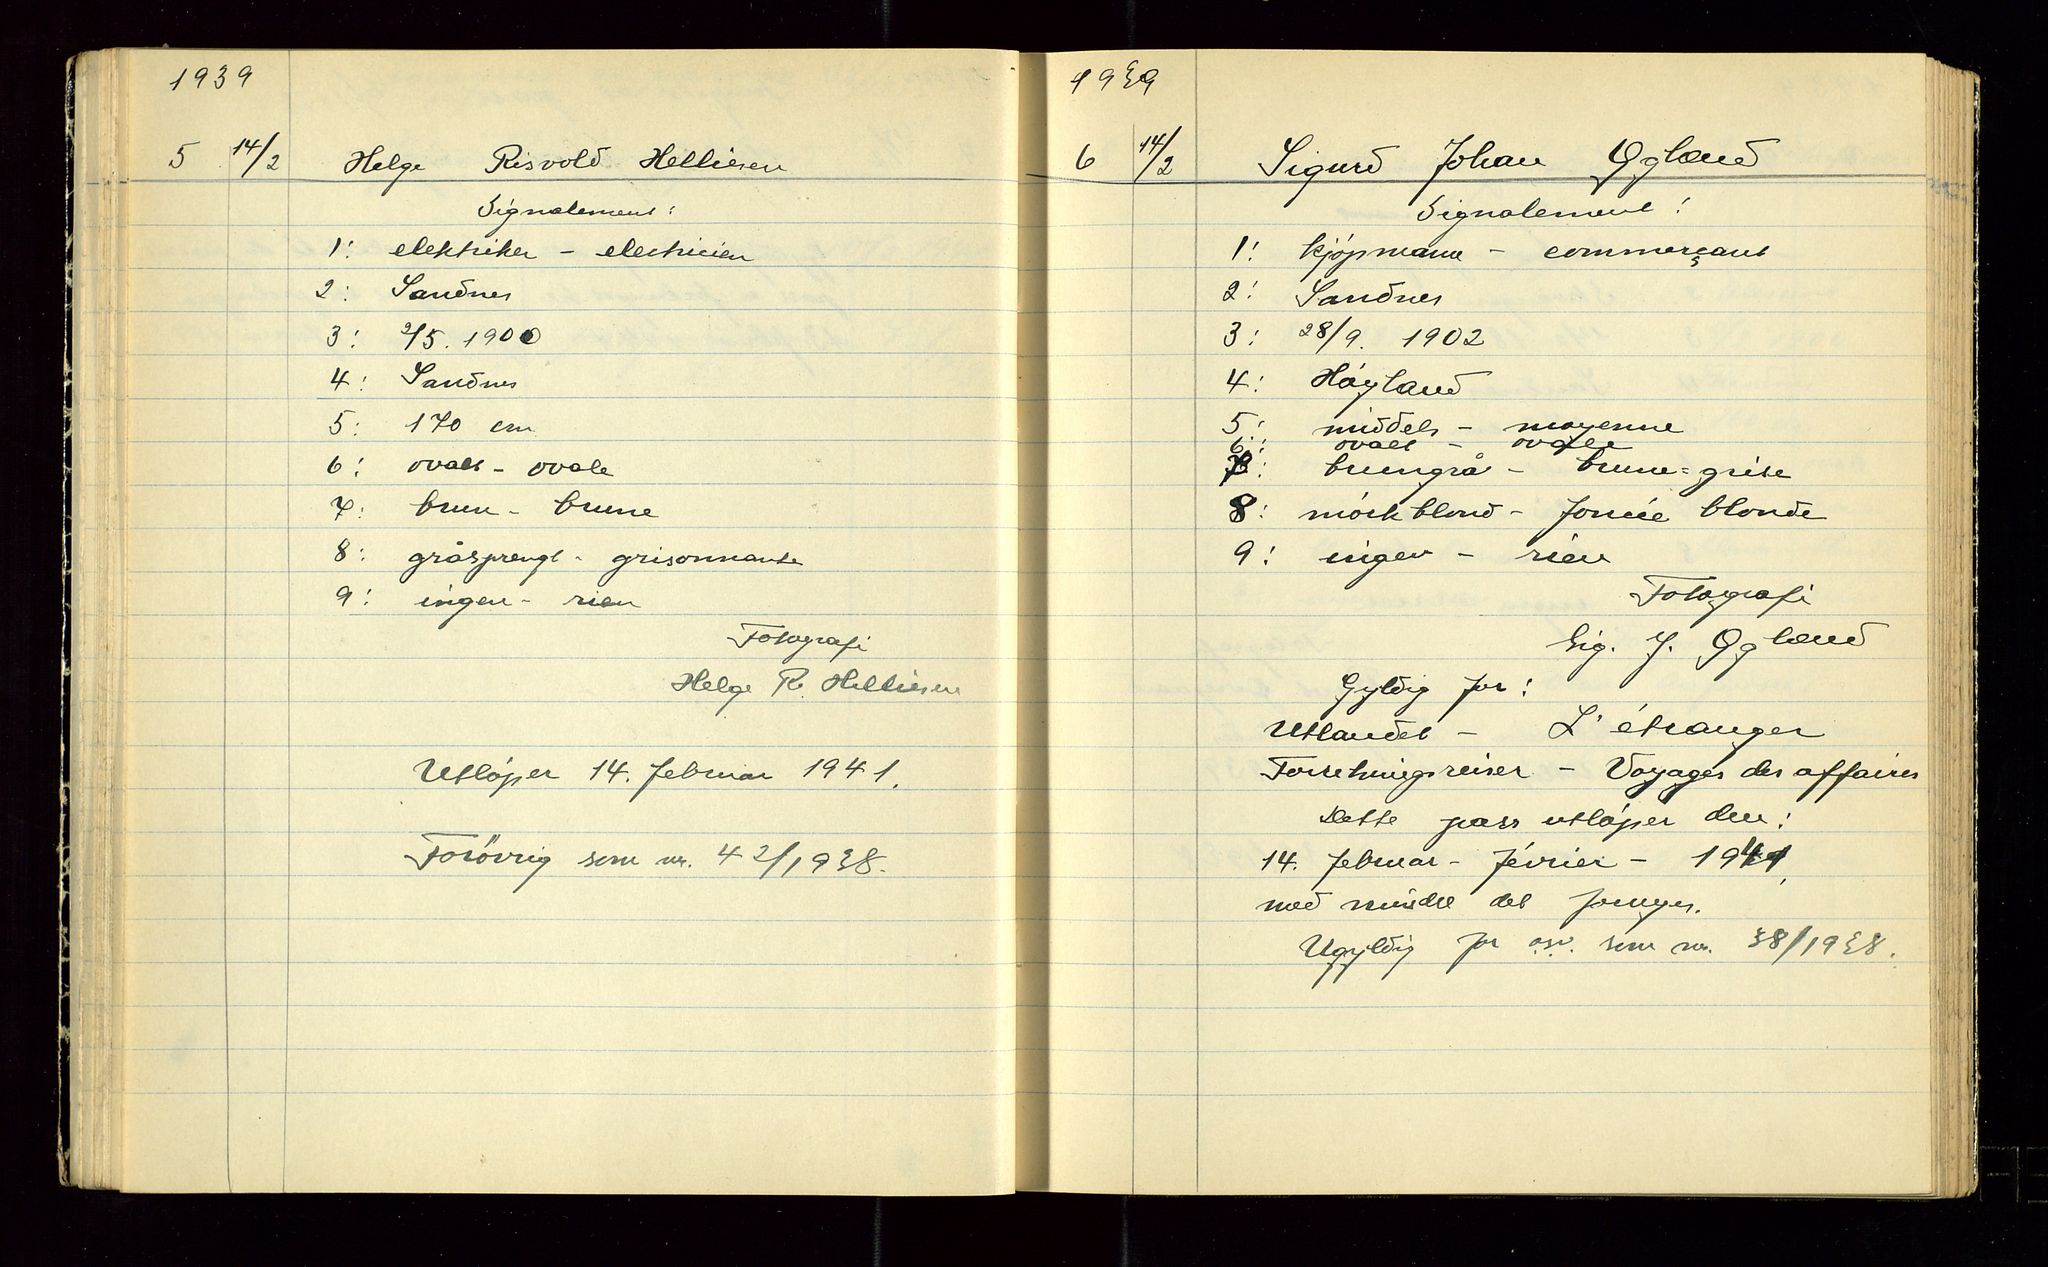 1939
5 14/2 Helge Risvold Helliesen
Signalement:
1: elektriker - electricien
2: Sandnes
3: 2/5. 1900
4: Sandnes
5: 170 cm
6: ovalt - ovale
7: brun - brune
8: gråsprengt - grisonnante
9: ingen - rien
Fotografi
Helge R. Helliesen
Utløper 14. februar 1941.
Forøvrig som nr. 42/1938.
1939
6 14/2 Sigurd Johan Øglænd
Signalement:
1: kjøpmann - commerçant
2: Sandnes
3: 28/9. 1902
4: Høyland
5: middels - moyenne
6: ovalt - ovale
7: brungrå - brune=grise
8: mørkblond - foncée blonde
9: ingen - rien
Fotografi
Sig. J. Øglænd
Gyldig for:
Utlandet - L'étranger
Forretningsreiser - Voyages des affaires
Dette pass utløper den:
14. februar - février - 1941,
med mindre det fornyes.
Ugyldig for osv. som nr. 38/1938.